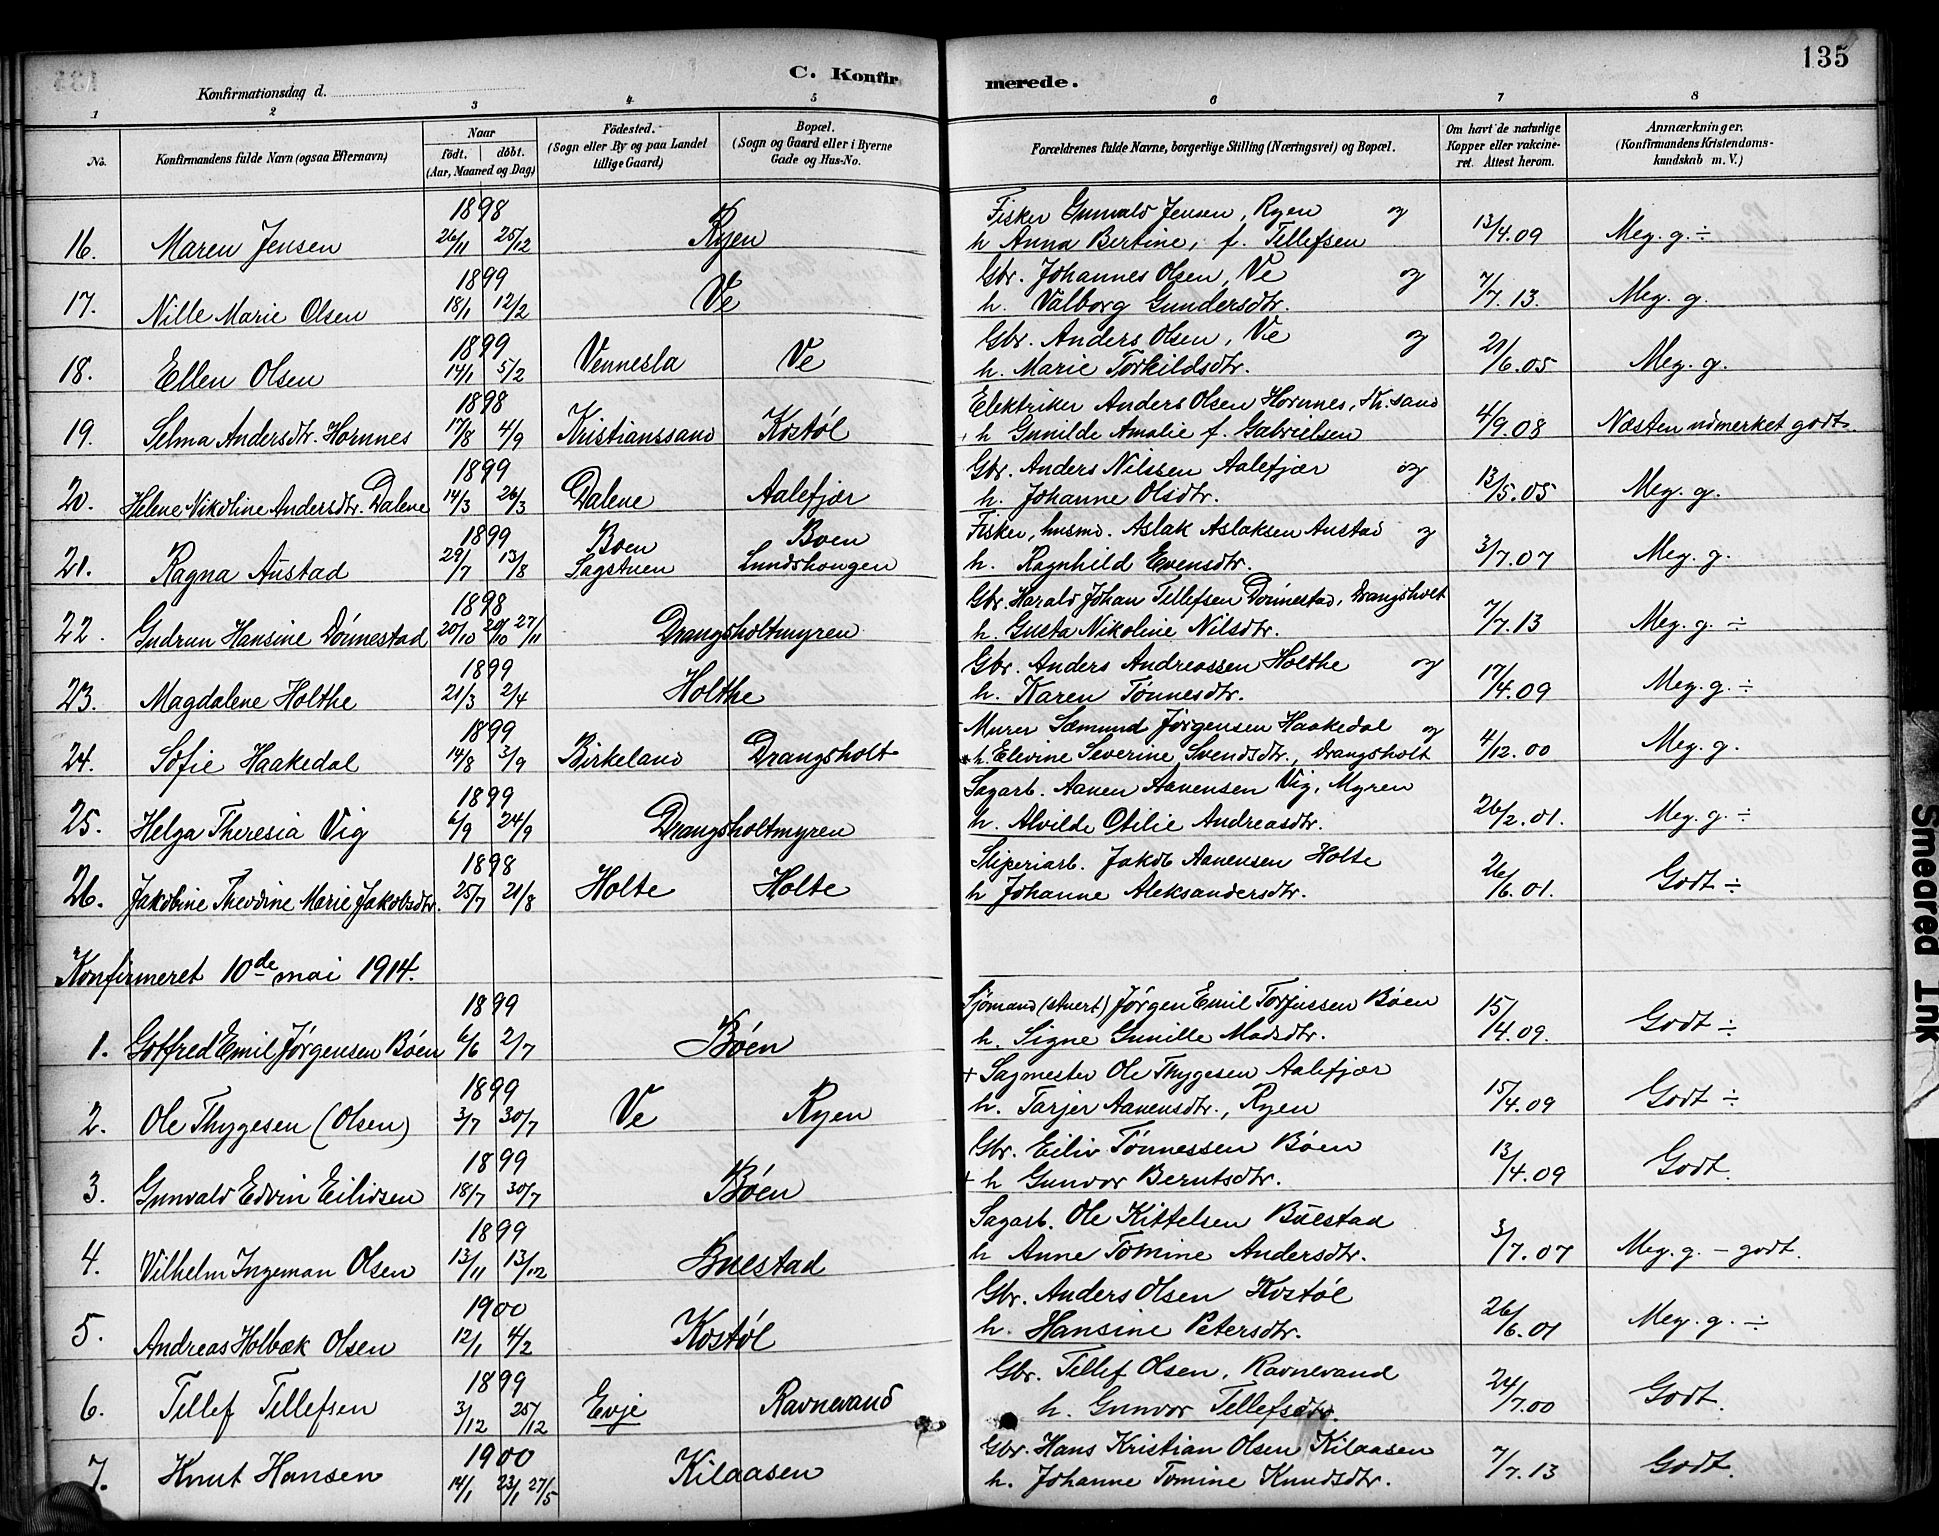 135
C. Konfirmerede.
Konfirmationsdag d.
1 2 3 4 5 6 7 8
No.
Konfirmandens fulde Navn (ogsaa Efternavn)
Naar
født. | døbt.
(Aar, Maaned og Dag)
Födested.
(Sogn eller By og paa Landet
tillige Gaard)
Bopæl.
(Sogn og Gaard eller i Byerne
Gade og Hus-No.
Forældrenes fulde Navne, borgerlige Stilling (Næringsvei) og Bopæl.
Om havt de naturlige
Kopper eller vaccine-
ret. Attest herom.
Anmærkninger.
(Konfirmandens Kristendoms-
kundskab m. V.)
1898 Fisker Gunvald Jensen, Ryen og
16. Maren Jensen 26/11 25/12 Ryen h Anna Bertine, f. Tellefsen 13/4.09 Meg. g. ÷
1899 Gbr. Johannes Olsen, Ve og
17. Nille Marie Olsen 18/1 12/2 Ve h. Valborg Gundersdtr. 7/7.13. Meg. g.
1899 Gbr. Anders Olsen, Ve og
18. Ellen Olsen 14/1 5/2 Vennesla Ve h. Marie Torkildsdtr. 21/6.05 Meg. g.
1898 Elektriker Anders Olsen Hornnes, Kr.sand
19. Selma Andersdtr. Hornnes 17/8 4/9 Kristianssand Kostøl h Gunilde Amalie f. Gabrielsen 4/9.08 Næsten udmerket godt.
1899 Gbr. Anders Nilssen Aalefjær og
20. Helene Nikoline Andersdtr. Dalene 14/3 26/3 Dalene Aalefjær h. Johanne Olsdtr. 13/5.05 Meg. g.
1899 Boen Boen Fisker, husmd. Aslak Aslaksen Austad og
21. Ragna Austad 29/7 13/8 Sagstuen Lundshougen h. Ragnhild Evensdtr. 3/7.07 Meg. g.
1898 Gbr. Harald Johan Tellefsen Dønnestad, Drangsholt
22. Gudrun Hansine Dønnestad 20/10 29/10 27/11 Drangsholtmyren h. Gusta Nikoline Nilsdtr. 7/7.13 Meg. g. ÷
1899 Gbr. Anders Andreassen Holthe og
23. Magdalene Holthe 21/3 2/4 Holthe h. Karen Tønnesdtr. 17/4.09 Meg. g. ÷
1899 Murer Sæmund Jørgensen Haakedal og
24. Sofie Haakedal 14/8 3/9 Birkeland Drangsholt h. Elevine Severine Svendsdtr., Drangsholt 4/12.00 Meg. g.
1899 Sagarb. Aanen Aanensen Vig, Myren
25. Helga Theresia Vig 6/9 24/9 Drangsholtmyren h. Alvilde Otilie Andreasdtr. 26/2.01. Meg. g. ÷
1898 Sliperiarb. Jakob Aanensen Holte
26. Jakobine Theodine Marie Jakobsdtr. 25/7 21/8 Holte Holte h Johanne Aleksandersdtr. 26/6.01. Godt ÷
Konfirmeret 10de mai 1914.
1899 Sjømand (Stuert) Jørgen Emil Torjussen Bøen
1. Gotfred Emil Jørgensen Bøen 6/6 2/7 Bøen h. Signe Gunille Madsdtr. 15/4.09. Godt ÷
1899 + Sagmester Ole Thygesen Aalefjær
2. Ole Thygesen (Olsen) 3/7 30/7 Ve Ryen h. Tarjer Aanensdtr., Ryen 15/4.09 Godt ÷
1899 Gbr. Eiliv Tønnessen Bøen
3. Gunvald Edvin Eilivsen 18/7 30/7 Bøen + h Gunvor Berntsdtr. 13/4.09 Godt.
1899 Sagarb. Ole Kittelsen Buestad
4. Vilhelm Ingeman Olsen 13/11 13/12 Buestad h Anne Tomine Andersdtr. 3/7.07 Meg. g. - godt.
1900 Gbr. Anders Olsen Kostøl
5. Andreas Holbæk Olsen 12/1 4/2 Kostøl h. Hansine Petersdtr. 26/6.01 Meg. g. ÷
1899 Gbr. Tellef Olsen, Ravnevand
6. Tellef Tellefsen 3/12 25/12 Evje Ravnevand h. Gunvor Tellefsdtr. 24/7.00 Godt.
1900 Gbr. Hans Kristian Olsen Kilaasen
7. Knut Hansen 14/1 23/1 27/5 Kilaasen h. Johanne Tomine Knudsdtr. 7/7.13 Godt.
Smeared Ink